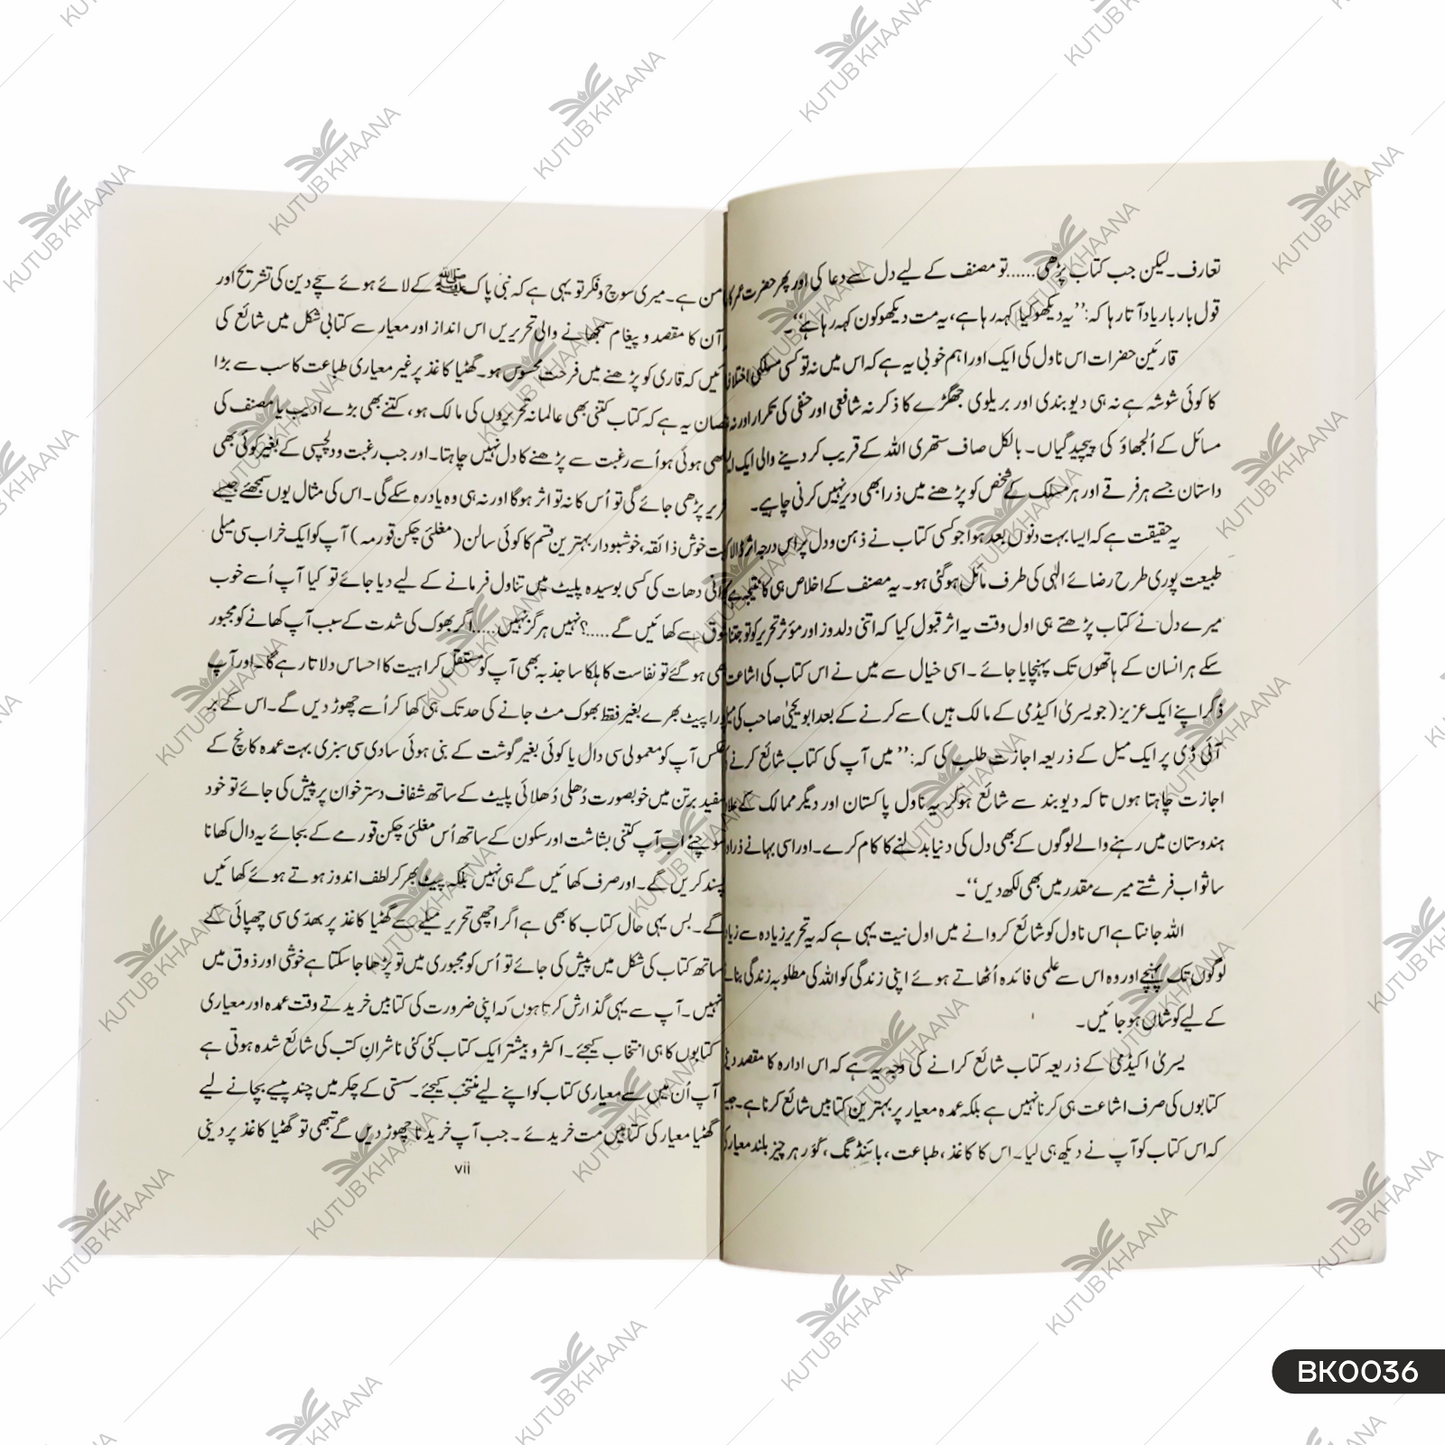 تعارف۔ لیکن جب کتاب پڑھی......تو مصنف کے لیے دل سے دعا کی اور پھر حضرت عمر کا
قول بار بار یاد آتا رہا کہ: ’’یہ دیکھو کیا کہہ رہا ہے، یہ مت دیکھو کون کہہ رہا ہے‘‘۔
قارئین حضرات اس ناول کی ایک اور اہم خوبی یہ ہے کہ اس میں نہ تو کسی مسلکی
کا کوئی شوشہ ہے نہ ہی دیوبندی اور بریلوی جھگڑے کا ذکر نہ شافعی اور حنفی کی تکرار اور نہ
مسائل کے اُلجھاؤ کی پیچیدگیاں۔ بالکل صاف ستھری اللہ کے قریب کر دینے والی ایک
داستان جسے ہر فرقے اور ہر مسلک کے شخص کو پڑھنے میں ذرا بھی دیر نہیں کرنی چاہیے۔
یہ حقیقت ہے کہ ایسا بہت دنوں بعد ہوا جو کسی کتاب نے ذہن و دل پر اس درجہ اثر ڈالا
طبیعت پوری طرح رضائے الٰہی کی طرف مائل ہوگئی ہو۔ یہ مصنف کے اخلاص ہی کا نتیجہ ہے
میرے دل نے کتاب پڑھتے ہی اول وقت یہ اثر قبول کیا کہ اتنی دلدوز اور مؤثر تحریر کو تو جتنا
سکے ہر انسان کے ہاتھوں تک پہنچایا جائے۔ اسی خیال سے میں نے اس کتاب کی اشاعت
ذکر اپنے ایک عزیز (جو یسریٰ اکیڈمی کے مالک ہیں) سے کرنے کے بعد ابو یحییٰ صاحب کی
آئی ڈی پر ایک میل کے ذریعہ اجازت طلب کی کہ: ’’میں آپ کی کتاب شائع کرنے
اجازت چاہتا ہوں تاکہ دیوبند سے شائع ہو کر یہ ناول پاکستان اور دیگر ممالک کے
ہندوستان میں رہنے والے لوگوں کے بھی دل کی دنیا بدلنے کا کام کرے۔ اور اسی بہانے ذرا
سا ثواب فرشتے میرے مقدر میں بھی لکھ دیں‘‘۔
اللہ جانتا ہے اس ناول کو شائع کروانے میں اول نیت یہی ہے کہ یہ تحریر زیادہ سے
لوگوں تک پہنچے اور وہ اس سے علمی فائدہ اُٹھاتے ہوئے اپنی زندگی کو اللہ کی مطلوبہ زندگی
کے لیے کوشاں ہو جائیں۔
یسریٰ اکیڈمی کے ذریعہ کتاب شائع کرانے کی وجہ یہ ہے کہ اس ادارہ کا مقصد
کتابوں کی صرف اشاعت ہی کرنا نہیں ہے بلکہ عمدہ معیار پر بہترین کتابیں شائع کرنا ہے۔
کہ اس کتاب کو آپ نے دیکھ ہی لیا۔ اس کا کاغذ، طباعت، بائنڈنگ، کور ہر چیز بلند معیار
من ہے۔ میری سوچ و فکر تو یہی ہے کہ نبی پاک ﷺ کے لائے ہوئے سچے دین کی تشریح اور
آن کا مقصد و پیغام سمجھانے والی تحریریں اس انداز اور معیار سے کتابی شکل میں شائع کی
ئیں کہ قاری کو پڑھنے میں فرحت محسوس ہو۔ گھٹیا کاغذ پر غیر معیاری طباعت کا سب سے بڑا
صان یہ ہے کہ کتاب کتنی بھی عالمانہ تحریروں کی مالک ہو، کتنے بھی بڑے ادیب یا مصنف کی
ھی ہوئی ہو اُسے رغبت سے پڑھنے کا دل نہیں چاہتا۔ اور جب رغبت و دلچسپی کے بغیر کوئی بھی
ریر پڑھی جائے گی تو اُس کا نہ تو اثر ہوگا اور نہ ہی وہ یاد رہ سکے گی۔ اس کی مثال یوں سمجھئے جیسے
ت خوش ذائقہ، خوشبودار بہترین قسم کا کوئی سالن (مغلئی چکن قورمہ) آپ کو ایک خراب سی میلی
انی دھات کی کسی بوسیدہ پلیٹ میں تناول فرمانے کے لیے دیا جائے تو کیا آپ اُسے خوب
وق سے کھائیں گے.....؟ نہیں ہرگز نہیں.....اگر بھوک کی شدت کے سبب آپ کھانے کو مجبور
ھی ہو گئے تو نفاست کا ہلکا سا جذبہ بھی آپ کو مستقل کراہیت کا احساس دلاتا رہے گا۔ اور آپ
را پیٹ بھرے بغیر فقط بھوک مٹ جانے کی حد تک ہی کھا کر اُسے چھوڑ دیں گے۔ اس کے بر
کس آپ کو معمولی سی دال یا کوئی بغیر گوشت کے بنی ہوئی سادی سی سبزی بہت عمدہ کانچ کے
فید برتن میں خوبصورت دُھلی دُھلائی پلیٹ کے ساتھ شفاف دستر خوان پر پیش کی جائے تو خود
سوچئے اب آپ کتنی بشاشت اور سکون کے ساتھ اُس مغلئی چکن قورمے کے بجائے یہ دال کھانا
پسند کریں گے۔ اور صرف کھائیں گے ہی نہیں بلکہ پیٹ بھر کر لطف اندوز ہوتے ہوئے کھائیں
گے۔ بس یہی حال کتاب کا بھی ہے اگر اچھی تحریر میلے سے گھٹیا کاغذ پر بھدّی سی چھپائی کے
ساتھ کتاب کی شکل میں پیش کی جائے تو اُس کو مجبوری میں تو پڑھا جا سکتا ہے خوشی اور ذوق میں
نہیں۔ آپ سے یہی گذارش کرتا ہوں کہ اپنی ضرورت کی کتابیں خریدتے وقت عمدہ اور معیاری
کتابوں کا ہی انتخاب کیجئے۔ اکثر و بیشتر ایک کتاب کئی کئی ناشرانِ کتب کی شائع شدہ ہوتی ہے
آپ اُن میں سے معیاری کتاب کو اپنے لیے منتخب کیجئے۔ سستی کے چکر میں چند پیسے بچانے لیے
گھٹیا معیار کی کتابیں مت خریدئے۔ جب آپ خریدنا چھوڑ دیں گے تبھی تو گھٹیا کاغذ پر دینی
vii
KUTUB KHAANA
BK0036